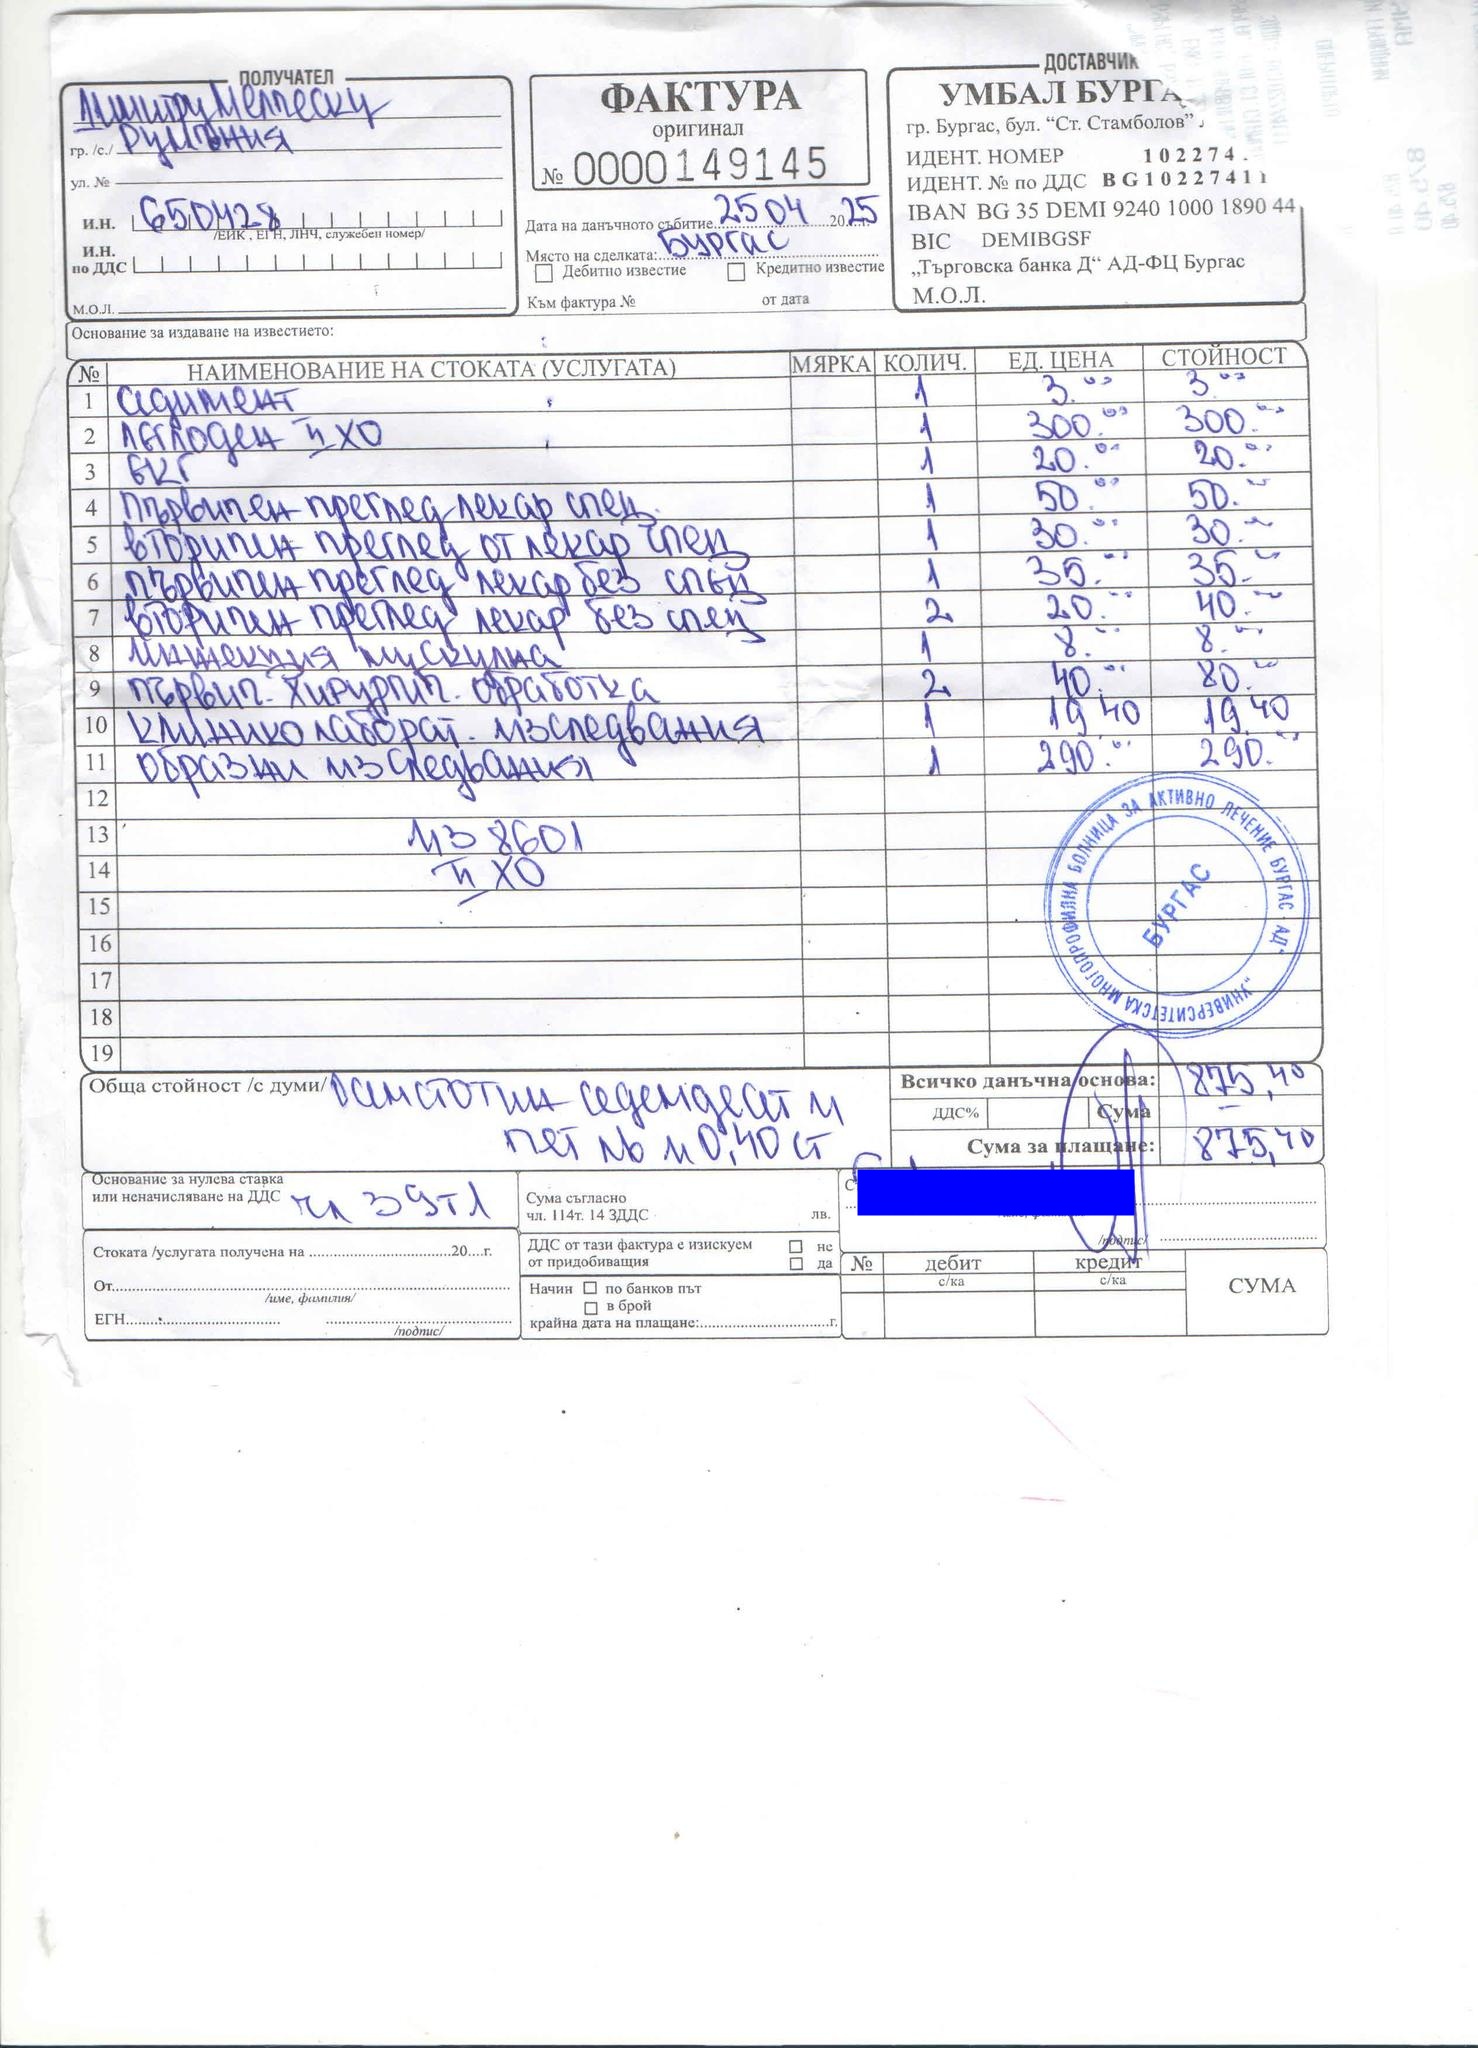 ПОЛУЧАТЕЛ
Димитру
Румъния
гр. /с./
ул. №
И.Н. 650428
/ЕИК, ЕГН, ЛНЧ, служебен номер/
И.Н.
по ДДС
М.О.Л.
ФАКТУРА
оригинал
№ 0000149145
Дата на данъчното събитие 25 04 2025 г.
Място на сделката: Бургас
Дебитно известие Кредитно известие
Към фактура № от дата
ДОСТАВЧИК
УМБАЛ БУРГА
гр. Бургас, бул. “Ст. Стамболов”
ИДЕНТ. НОМЕР 102274
ИДЕНТ. № по ДДС BG10227411
IBAN BG 35 DEMI 9240 1000 1890 44
BIC DEMIBGSF
„Търговска банка Д“ АД-ФЦ Бургас
М.О.Л.
Основание за издаване на известието:
№ НАИМЕНОВАНИЕ НА СТОКАТА (УСЛУГАТА) МЯРКА КОЛИЧ. ЕД. ЦЕНА СТОЙНОСТ
1 седимент 1 3.00 3.00
2 леглоден II ХО 1 300.00 300.00
3 ЕКГ 1 20.00 20.00
4 първичен преглед лекар спец. 1 50.00 50.00
5 вторичен преглед от лекар спец 1 30.00 30.00
6 първичен преглед лекар без спец 1 35.00 35.00
7 вторичен преглед лекар без спец 2 20.00 40.00
8 инжекция мускулна 1 8.00 8.00
9 първич. хирургич. обработка 2 40.00 80.00
10 клинико лаборат. изследвания 1 19.40 19.40
11 образни изследвания 1 290.00 290.00
12
13 ИЗ 8601
14 II ХО
15
16
17
18
19
„УНИВЕРСИТЕТСКА МНОГОПРОФИЛНА БОЛНИЦА ЗА АКТИВНО ЛЕЧЕНИЕ БУРГАС АД“
БУРГАС
Обща стойност /с думи/ осемстотин седемдесет и
пет лв и 0,40 ст
Всичко данъчна основа: 875,40
ДДС% Сума –
Сума за плащане: 875,40
Основание за нулева ставка
или неначисляване на ДДС чл 39 т 1
Сума съгласно
чл. 114т. 14 ЗДДС лв.
/подпис/
Стоката /услугата получена на 20 г.
От
/име, фамилия/
ЕГН
/подпис/
ДДС от тази фактура е изискуем не
от придобиващия да
Начин по банков път
в брой
крайна дата на плащане: г.
№ дебит кредит СУМА
с/ка с/ка